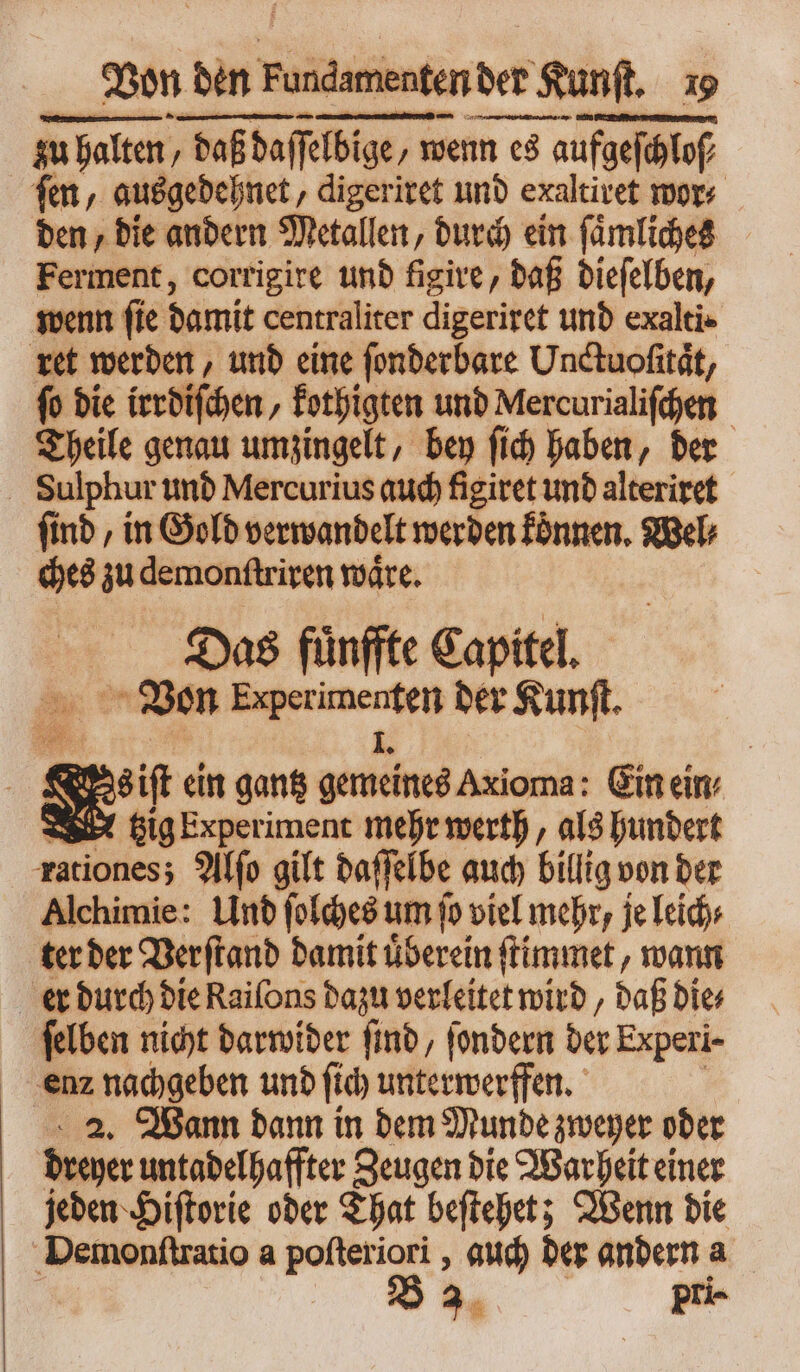 Von den Fundamenten der Kunſt. 19
zu halten, daß daſſelbige, wenn es aufgeſchloſ-
ſen, ausgedehnet, digeriret und exaltiret wor-
den, die andern Metallen, durch ein ſaͤmliches
Ferment, corrigire und figire, daß dieſelben,
wenn ſie damit centraliter digeriret und exalti-
ret werden, und eine ſonderbare Unctuoſitaͤt,
ſo die irrdiſchen, kothigten und Mercurialiſchen
Theile genau umzingelt, bey ſich haben, der
Sulphur und Mercurius auch figiret und alteriret
ſind, in Gold verwandelt werden koͤnnen. Wel-
ches zu demonſtriren waͤre.
Das fuͤnffte Capitel.
Von Experimenten der Kunſt.
I.
Es iſt ein gantz gemeines Axioma: Ein ein-
tzig Experiment mehr werth, als hundert
rationes; Alſo gilt daſſelbe auch billig von der
Alchimie: Und ſolches um ſo viel mehr, je leich-
ter der Verſtand damit uͤberein ſtimmet, wann
er durch die Raiſons dazu verleitet wird, daß die-
ſelben nicht darwider ſind, ſondern der Experi-
enz nachgeben und ſich unterwerffen.
2. Wann dann in dem Munde zweyer oder
dreyer untadelhaffter Zeugen die Warheit einer
jeden Hiſtorie oder That beſtehet; Wenn die
Demonſtratio a poſteriori, auch der andern a
B 2 pri-